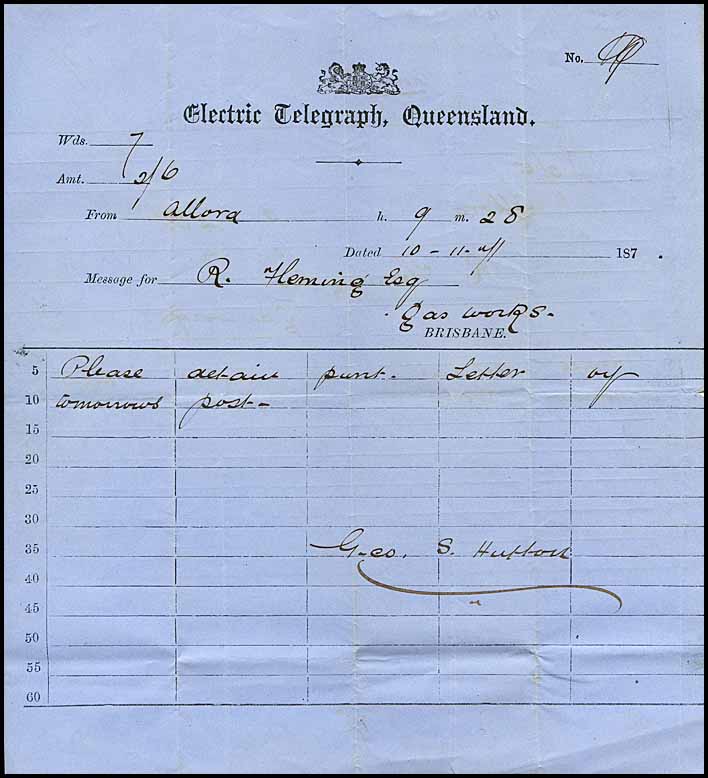 No.
Electric Telegraph, Queensland.
Wds. 7
Amt. 2/6
From Allora h. 9 m. 28
Dated 10-11-71 187 .
Message for R. Fleming Esq
Gas works.
BRISBANE.
5 Please detain punt. Letter by
10 tomorrows post-
15
20
25
30
35 Geo. S. Hutton
40
45
50
55
60